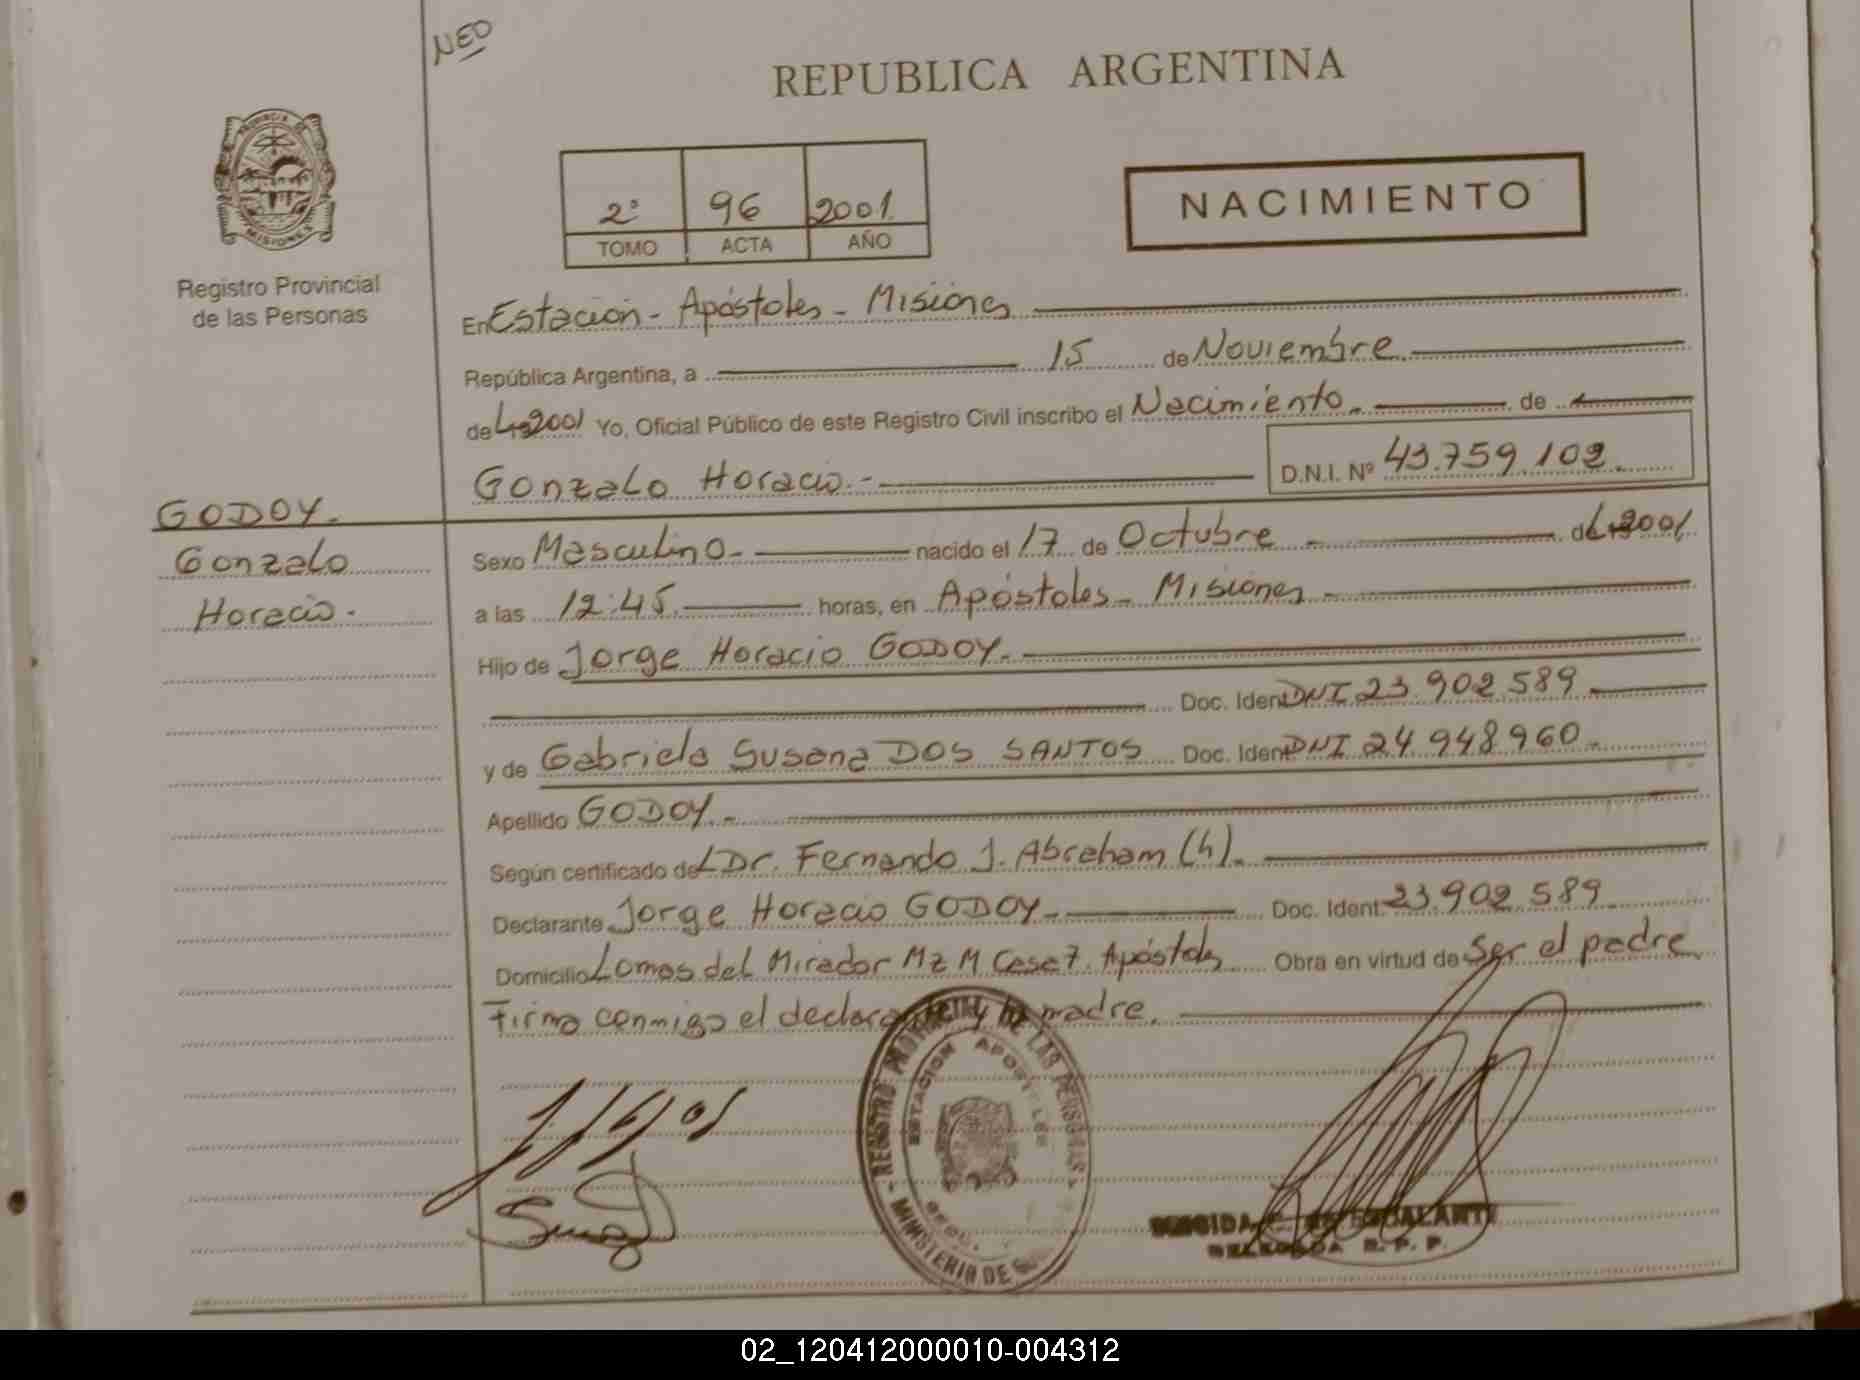 NEO
REPUBLICA ARGENTINA
PROVINCIA DE
MISIONES
Registro Provincial
de las Personas
2º 96 2001
TOMO ACTA AÑO
NACIMIENTO
En Estación - Apóstoles - Misiones
República Argentina, a 15 de Noviembre
de L 2001 Yo, Oficial Público de este Registro Civil inscribo el Nacimiento. de
Gonzalo Horacio.- D.N.I. Nº 43.759.102.
GODOY.
Gonzalo
Horacio.
Sexo Masculino- nacido el 17 de Octubre - de L 2001.
a las 12:45. horas, en Apóstoles - Misiones -
Hijo de Jorge Horacio GODOY.-
Doc. Ident. DNI 23.902.589
y de Gabriela Susana DOS SANTOS Doc. Ident. DNI 24.948.960.
Apellido GODOY.-
Según certificado del Dr. Fernando J. Abraham (h).
Declarante Jorge Horacio GODOY- Doc. Ident. 23.902.589
Domicilio Lomas del Mirador Mz M Casa 7. Apóstoles Obra en virtud de Ser el padre
Firma conmigo el declarante y la madre.
REGISTRO PROVINCIAL DE LAS PERSONAS
ESTACION APOSTOLES
MINISTERIO DE
DELEGADA R. P. P.
02_120412000010-004312